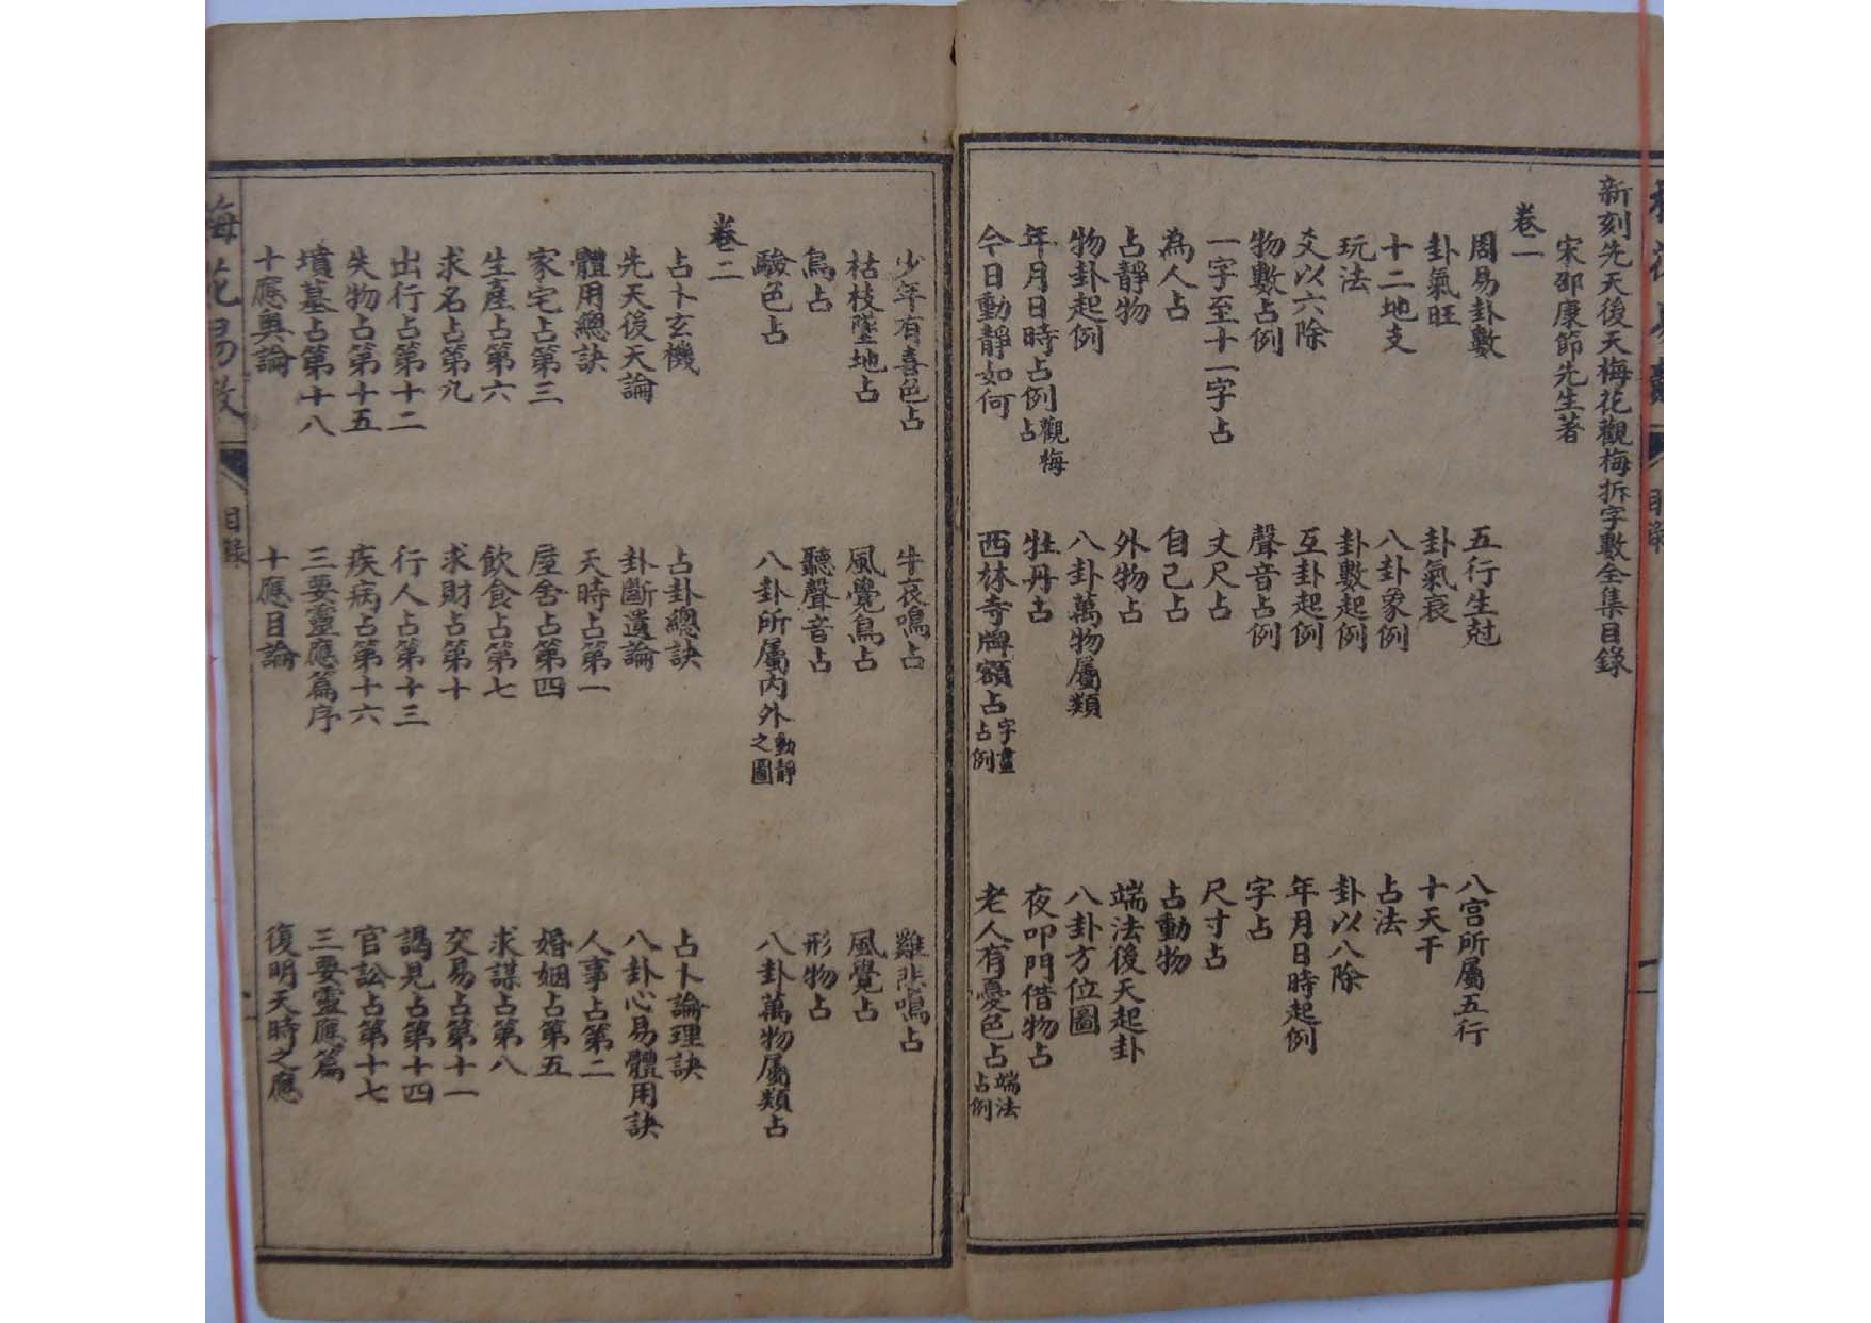 新刻先天後天梅花觀梅拆字數全集目錄
宋邵康節先生著
卷二
周易卦數 五行生尅 八宮所屬五行
卦氣旺 卦氣衰 十天干
十二地支 八卦象例 占法
玩法 卦數起例 卦以八除
爻以六除 互卦起例 年月日時起例
物數占例 聲音占例 字占
一字至十一字占 丈尺占 尺寸占
為人占 自己占 占動物
占靜物 外物占 端法後天起卦
物卦起例 八卦萬物屬類 八卦方位圖
年月日時占例觀梅占 牡丹古 夜叩門借物占
今日動靜如何 西林寺牌額占字畫占例 老人有憂色占端法占例
少年有喜色占 牛哀鳴占 雞悲鳴占
枯枝墜地占 風覺鳥占 風覺占
鳥占 聽聲音占 形物占
驗色占 八卦所屬內外動靜之圖 八卦萬物屬類占
卷二
占卜玄機 占卦總訣 占卜論理訣
先天後天論 卦斷遺論 八卦心易體用訣
體用總訣 天時占第一 人事占第二
家宅占第三 屋舍占第四 婚姻占第五
生產占第六 飲食占第七 求謀占第八
求名占第九 求財占第十 交易占第十一
出行占第十二 行人占第十三 謁見占第十四
失物占第十五 疾病占第十六 官訟占第十七
墳墓占第十八 三要靈應篇序 三要靈應篇
十應奧論 十應目論 復明天時之應
梅花易數
目錄